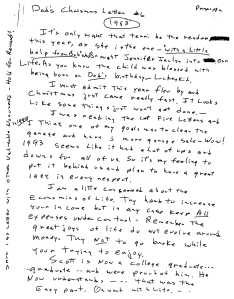 Dad's Christmas Letter #6
1983
It's only right that Terri be the reader
this year, as she is the one - with a little
help from Bob - Jennifer Taylor into our
Life. As you know the child was blessed with
being born on Dad's birthday - Lucky Kid.
I must admit this year flew by and
Christmas just came really fast. It looks
like some things just won't get done.
I was reading the last Five Letters and
I think one of my goals was to clean the
garage and have 2 more garage sales - Wow!
1983 seems like it had a lot of ups and
downs for all of us. So it's my feeling to
put it behind us and plan to have a great
1984 in every respect.
I am a little concerned about the
Economics of Life. Try hard to increase
your income but in any case keep All
Expenses under control - Remember the
great joys of life do not evolve around
money. Try Not to go broke while
your trying to enjoy.
Scott is now a college graduate --
graduate - and were proud of him. He
Now understands --- that was the
Easy part. On with Life ---
Save this Letter with other Valuable Documents - Hold for Record!